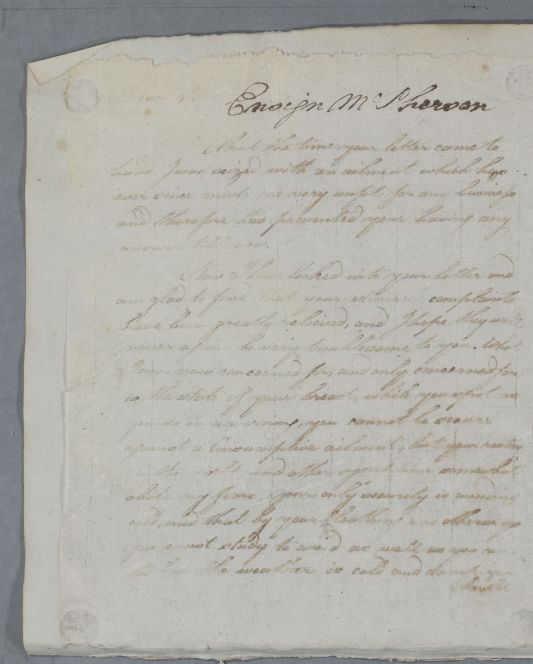 Ensign McPherson
About the time your letter came to
hand I was seized with an ailment which has
ever since made me very unfit for any business
and therefore has prevented your having any
answer till now.
Now I have looked into your letter and
am glad to find that your complaints
have been greatly relieved, and I hope they will
never again be very troublesome to you. What
I am now concerned for, and only concerned for
is the state of your breast, which you
you cannot be secure
against a Consumptive ailment, but your
in the and other
my fears. Your only security is avoiding
cold, and that by your cloathing and otherwise
you must study to avoid as well as you can
the weather is cold and damp you
should